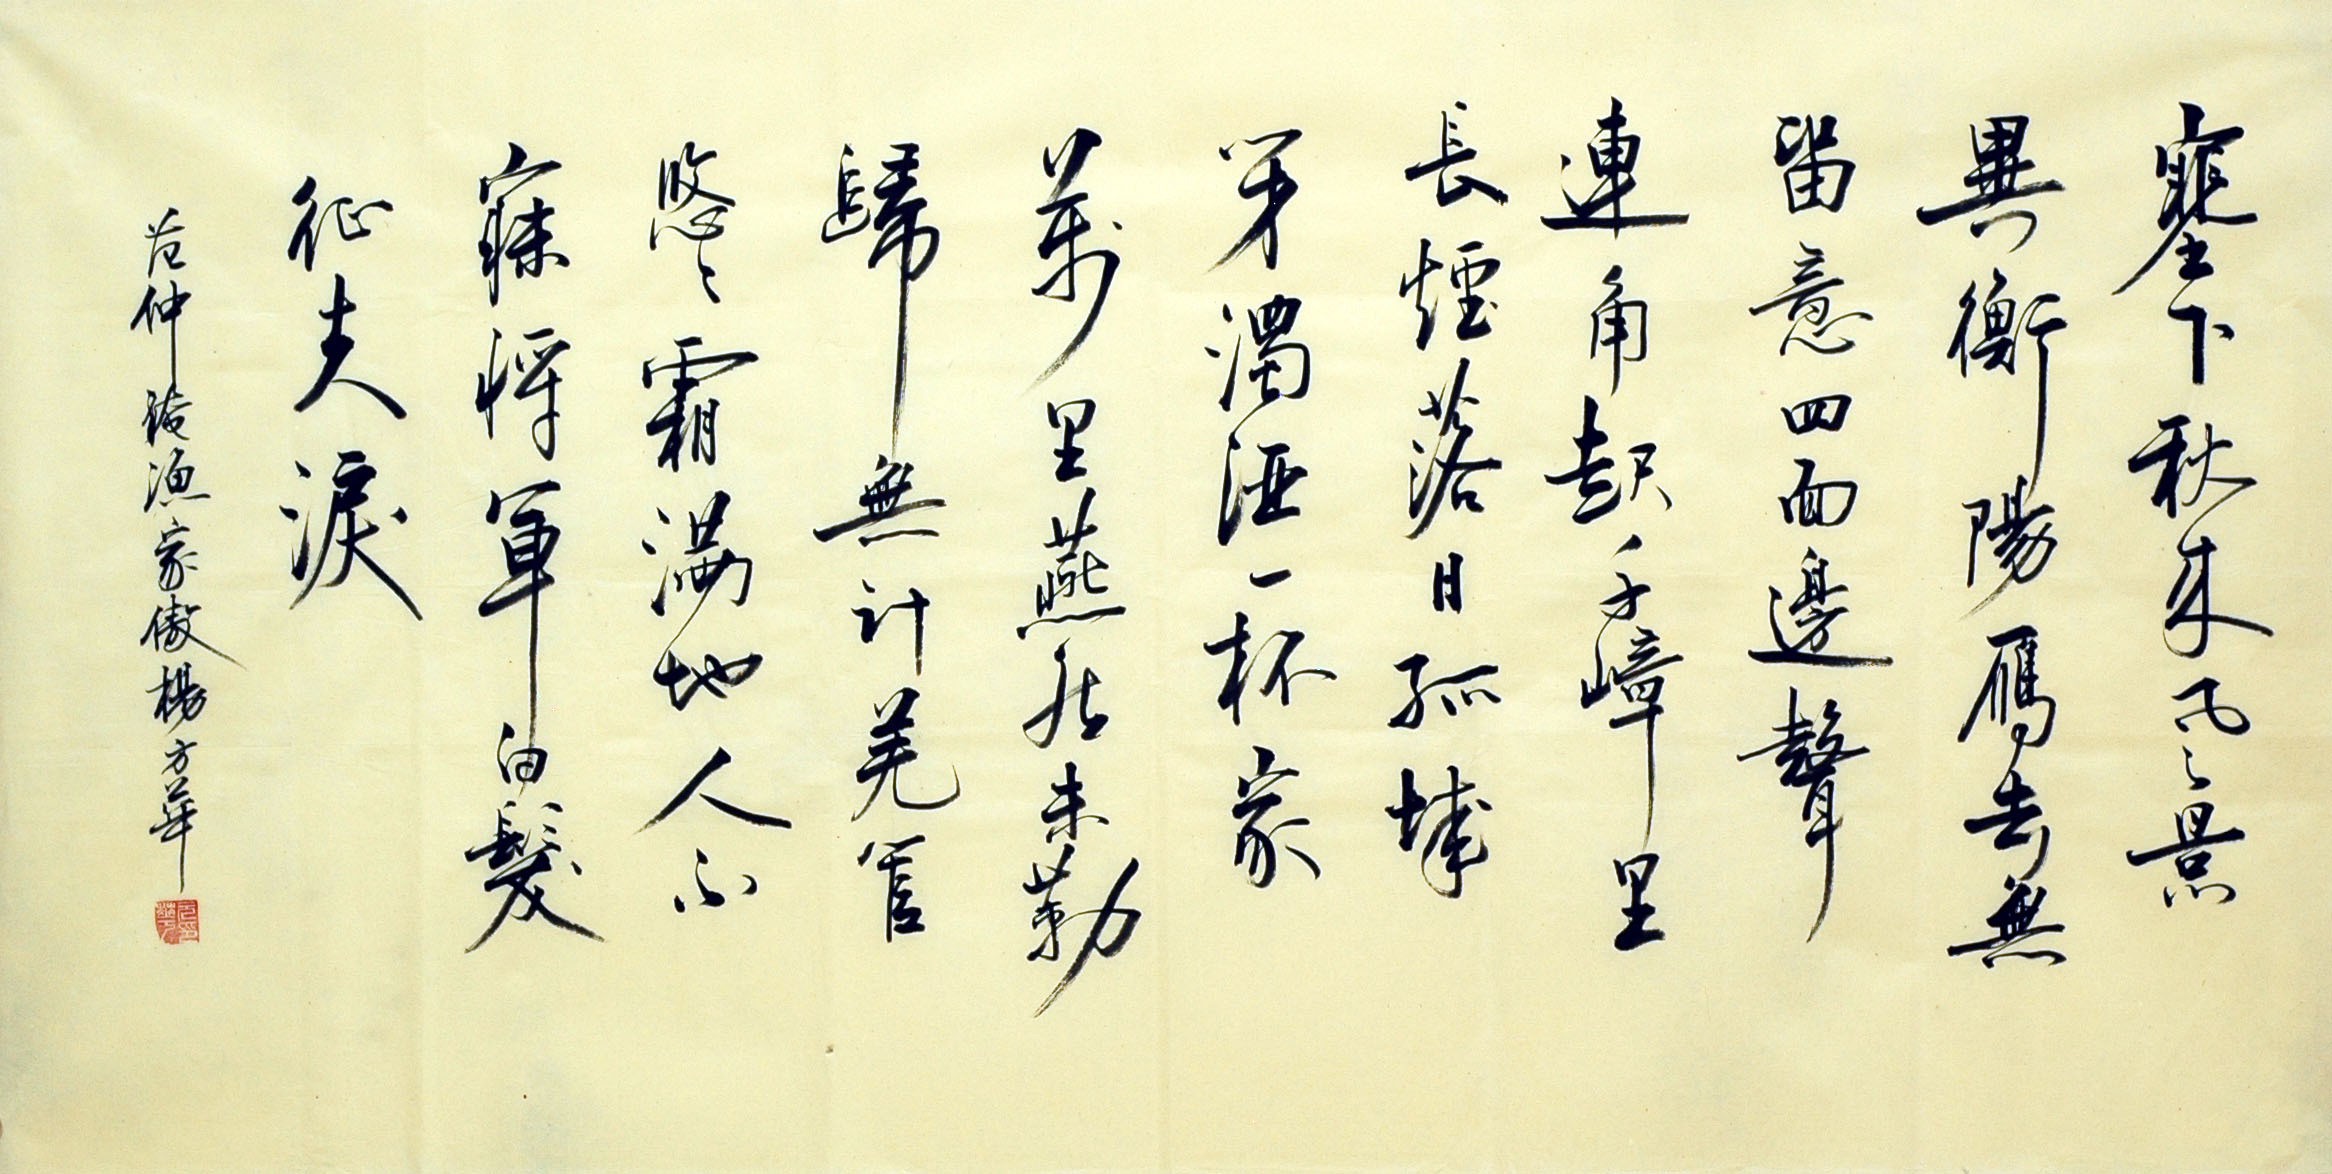 塞下秋来风景
異衡陽雁去無
留意四面邊聲
連角起千嶂里
長煙落日孤城
閉濁酒一杯家
萬里燕然未勒
歸無計羌管
悠々霜滿地人不
寐將軍白髮
征夫淚
范仲淹漁家傲楊方華